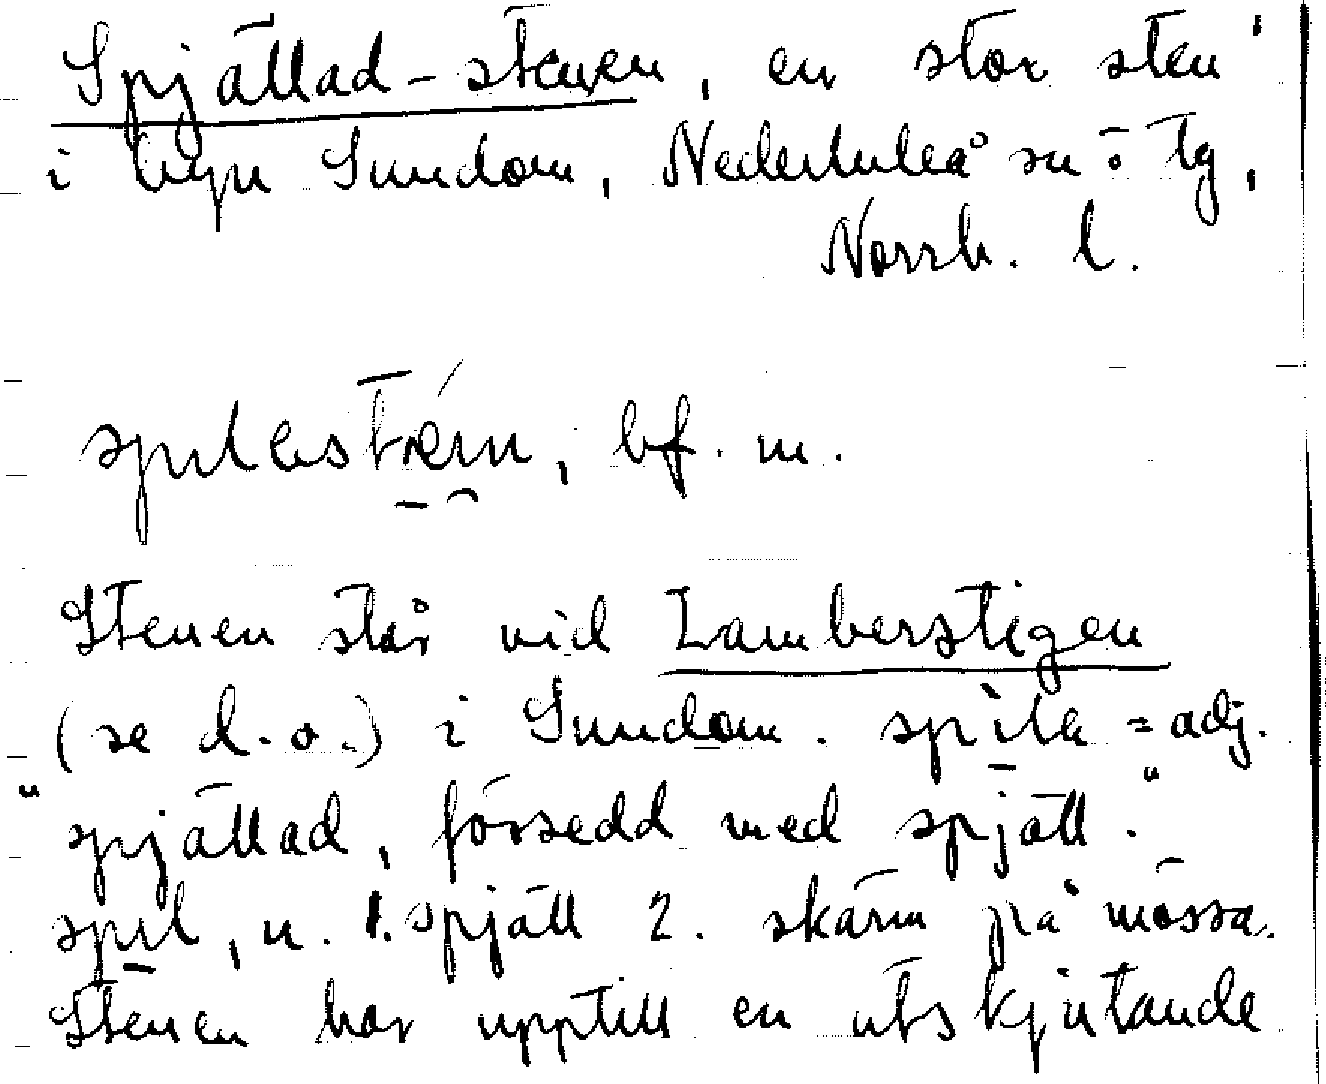 Spjällad-stenen, en stor sten
i byn Sundom, Nederluleå sn o tg,
Norrb. l.
bf. m.
Stenen står vid Lamberstigen
(se d.o.) i Sundom. = adj.
"spjällad, försedd med spjäll."
n. 1. spjäll 2. skärm på mössa.
Stenen har upptill en utskjutande